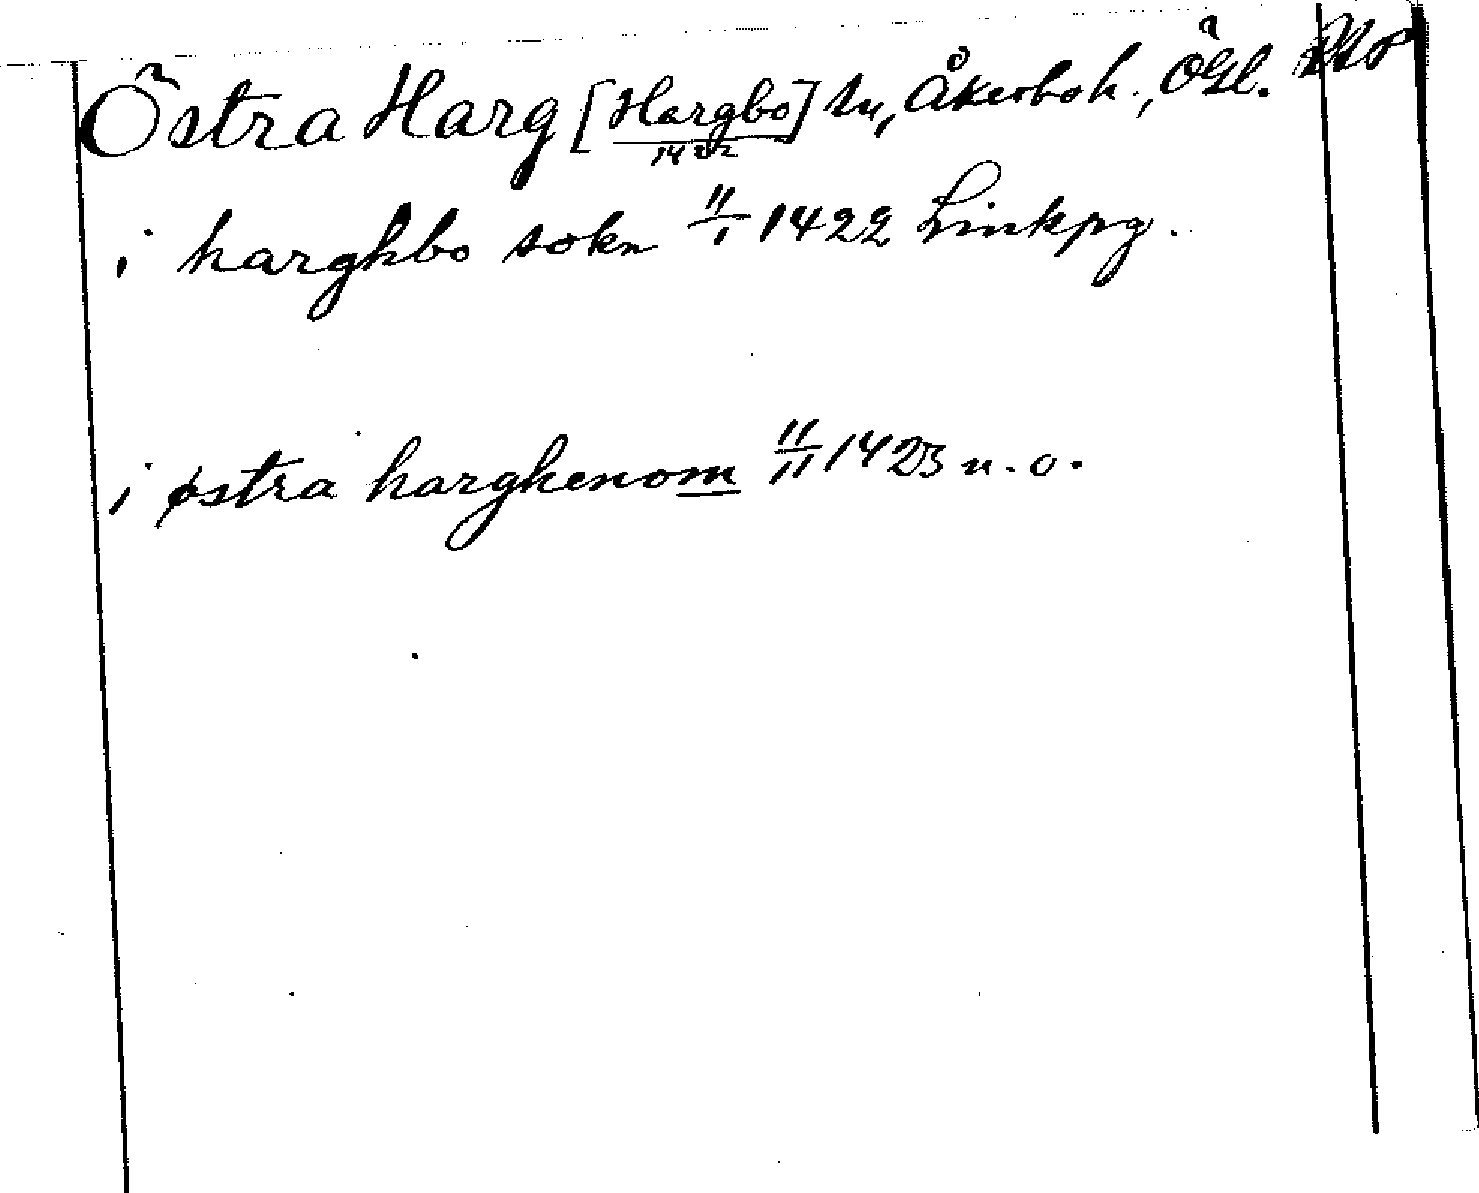 Östra Harg [Hargbo] sn, Åkerbo h., Ögl.
1422
i harghbo sokn 11/1 1422 Linkpg.
i østra harghenom 11/11 1423 n. o.